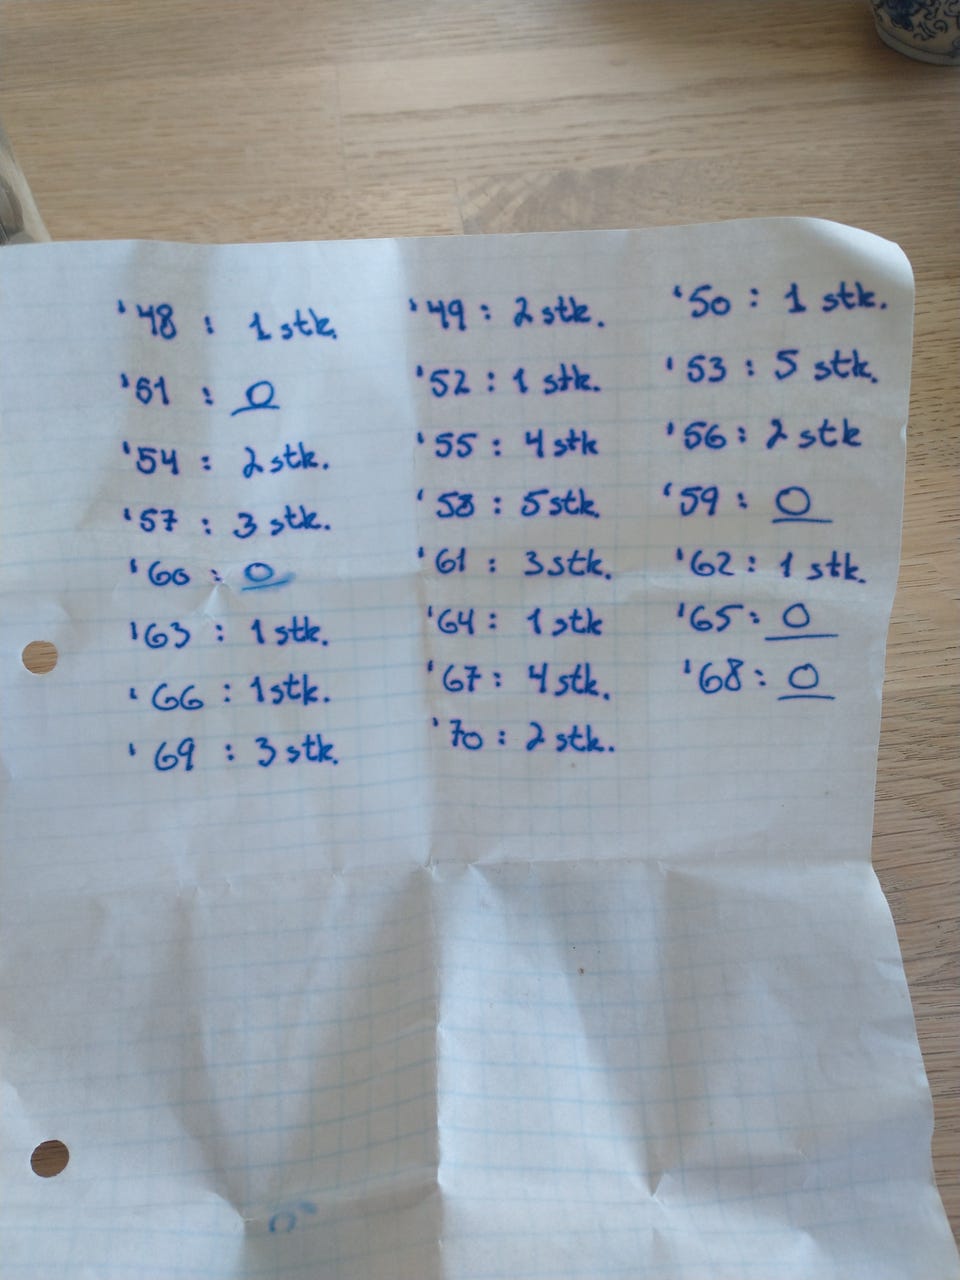 '48 : 1 stk. '49 : 2 stk. '50 : 1 stk.
'51 : 0 '52 : 1 stk. '53 : 5 stk.
'54 : 2 stk. '55 : 4 stk '56 : 2 stk
'57 : 3 stk. '58 : 5 stk. '59 : 0
'60 : 0 '61 : 3 stk. '62 : 1 stk.
'63 : 1 stk. '64 : 1 stk '65 : 0
'66 : 1 stk. '67 : 4 stk. '68 : 0
'69 : 3 stk. '70 : 2 stk.